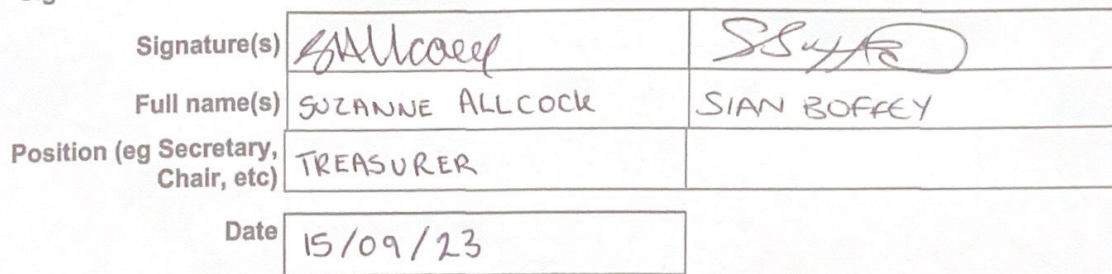 Signature(s)
Full name(s) SUZANNE ALLCOCK SIAN BOFFEY
Position (eg Secretary,
Chair, etc) TREASURER
Date 15/09/23